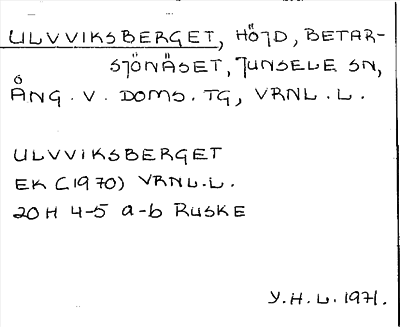 ULVVIKSBERGET, HÖJD, BETAR-
SJÖNÄSET, JUNSELE SN,
ÅNG. V. DOMS. TG, VRNL. L.
ULVVIKSBERGET
EK (1970) VRNL.L.
20H 4-5 a-b RUSKE
Y.H.L. 1971.